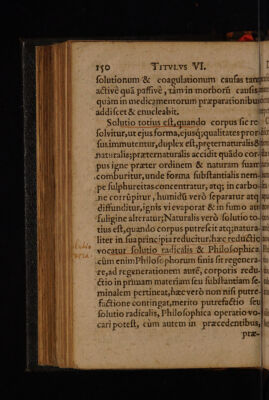 150 TITVLVS VI.
solutionum & coagulationum causas tam
activè quã passivè, tàm in morborũ causis
quàm in medicamentorum præparationibus
addiscet & enucleabit.
Solutio totius est, quando corpus sic re-
solvitur, ut ejus forma, ejusq; qualitates pror-
sus immutentur, duplex est, præternaturalis &
naturalis: præternaturalis accidit quãdo cor-
pus igne præter ordinem & naturam suam
comburitur, unde forma substantialis nem-
pe sulphureitas concentratur, atq; in carbo-
ne corrũpitur, humidũ verò separatur atq;
diffunditur, ignis vi evaporat & in fumo aut
fuligine alteratur; Naturalis verò solutio to-
tius est, quando corpus putrescit atq; natura-
liter in sua principia reducitur, hæc reductio
vocatur solutio radicalis & Philosophica
cùm enim Philosophorum finis sit regenera-
re, ad regenerationem autẽ, corporis redu-
ctio in primam materiam seu substantiam se-
minalem pertineat, hæc verò non nisi putre-
factione contingat, meritò putrefactio seu
solutio radicalis, Philosophica operatio vo-
cari potest, cùm autem in præcedentibus,
præ-